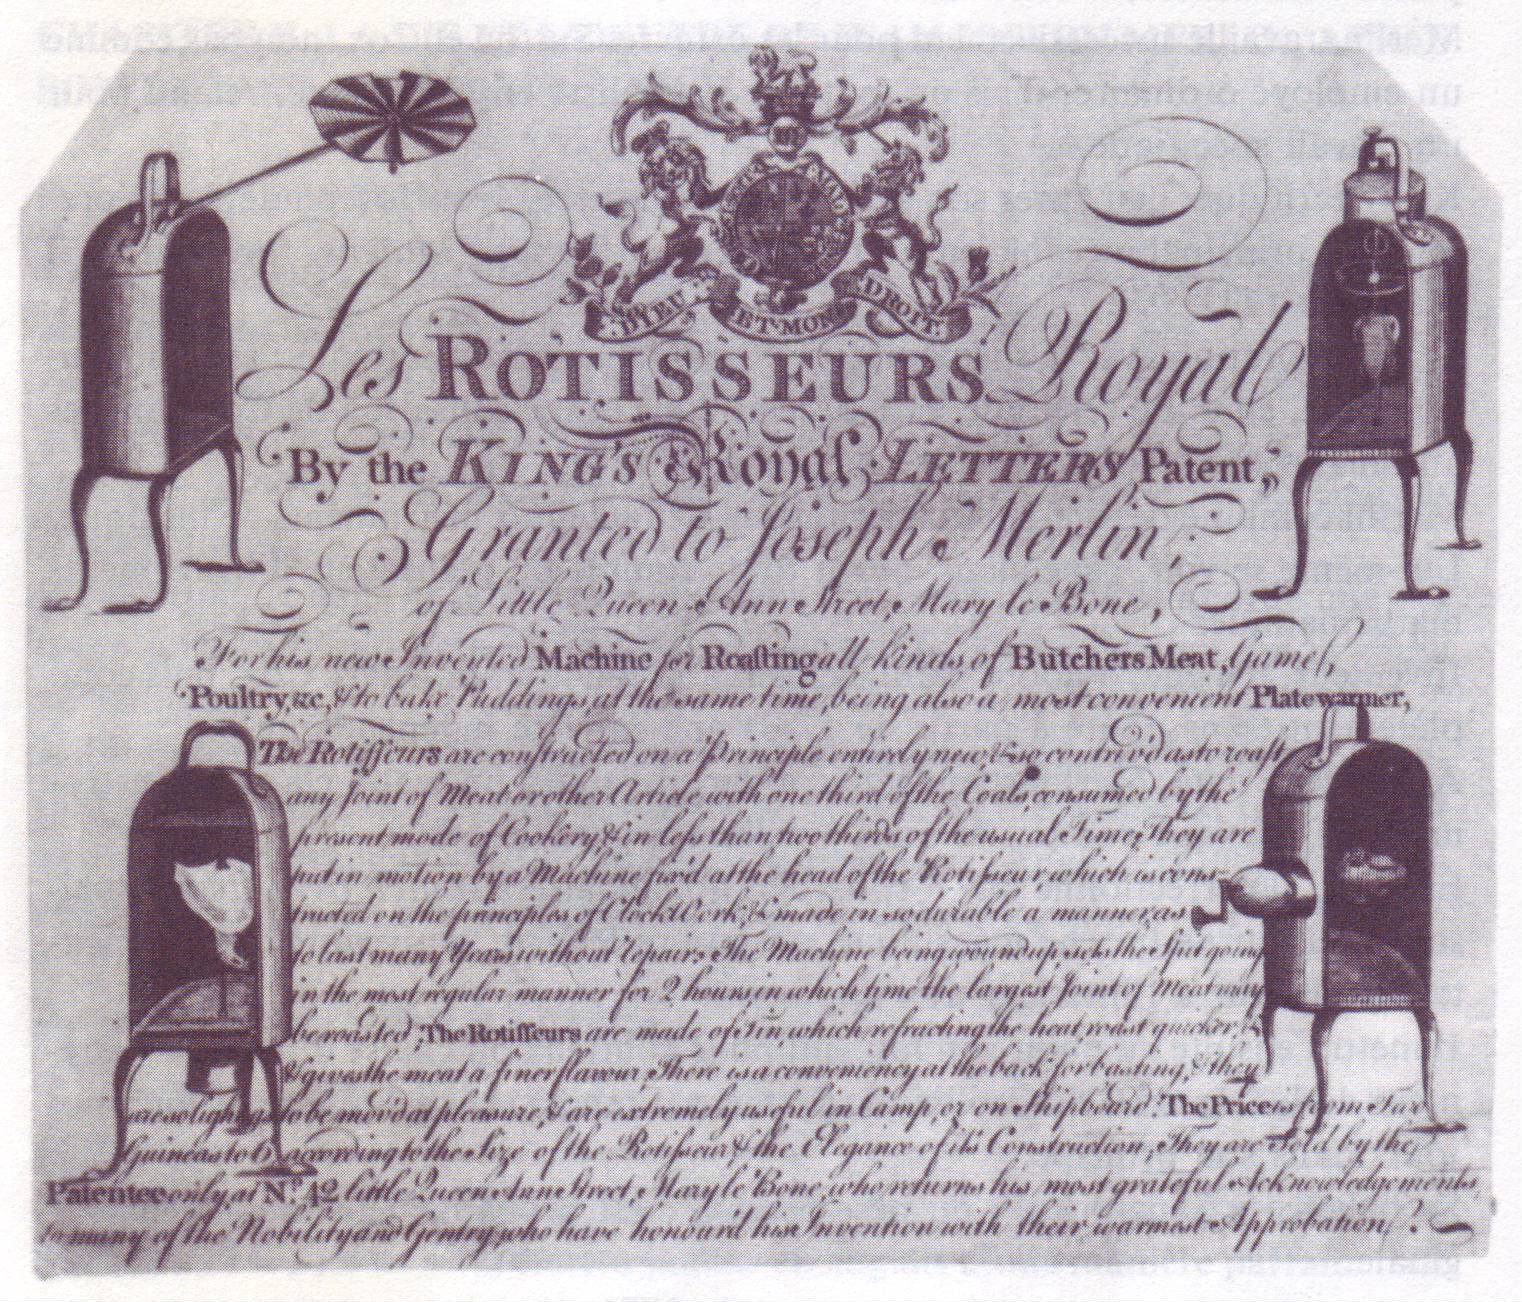 DIEU ET·MON DROIT.
Les ROTISSEURS Royal
By the KING'S & Royal LETTERS Patent,
Granted to Joseph Merlin,
of Little Queen Ann Street, Mary le Bone,
For his new Invented Machine for Roaſting all kinds of Butchers Meat, Game,
Poultry, &c, & to bake Puddings, at the same time, being also a most convenient Platewarmer,
The Rotiſſeurs are conſtructed on a Principle entirely new, & so contrived as to roaſt
any Joint of Meat or other Article with one third of the Coals, consumed by the
present mode of Cookery, & in leſs than two thirds of the usual Time, They are
put in motion by a Machine fix'd at the head of the Rotiſseur, which is cons-
tructed on the principles of Clock Work, & made in so durable a manner as
to last many Years without repair, The Machine being wound up sets the Spit going
in the most regular manner for 2 hours, in which time the largest Joint of Meat may
be roasted, The Rotiſſeurs are made of Tin, which refracting the heat, roast quicker,
& gives the meat a finer flavour, There is a conveniency at the back for basting, & they
are so light as to be mov'd at pleasure, & are extremely useful in Camp, or on Shipboard. The Price is from Two
Guineas to 6 according to the Size of the Rotiſseur, & the Elegance of its Construction, They are Sold by the
Patentee only, at No. 42 little Queen Ann Street, Mary le Bone, who returns his most grateful Acknowledgements
to many of the Nobility and Gentry, who have honour'd his Invention with their warmest Approbation.